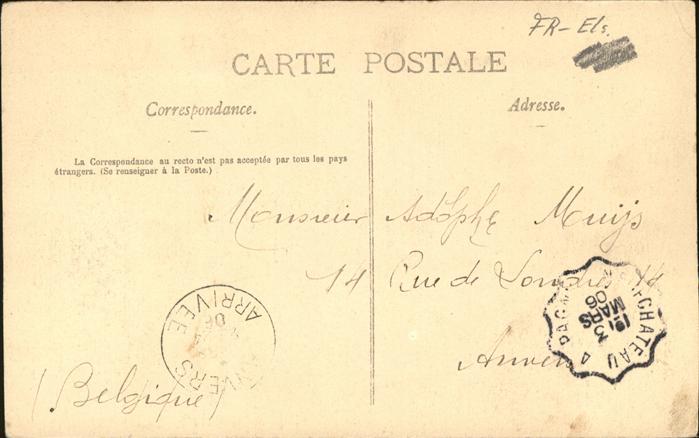 FR-Els.
CARTE POSTALE
Correspondance.
Adresse.
La Correspondance au recto n'est pas acceptée par tous les pays
étrangers. (Se renseigner à la Poste.)
Monsieur Adolphe Muijs
14 Rue de Londres 14
Anvers
(Belgique)
ARRIVÉE
CHATEAU A
MARS
06